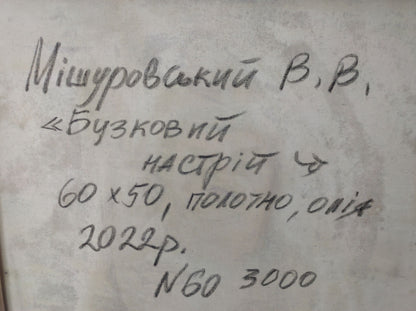 Мішуровський В. В.
«Бузковий
настрій»
60 x 50, полотно, олія
2022р.
N60 3000